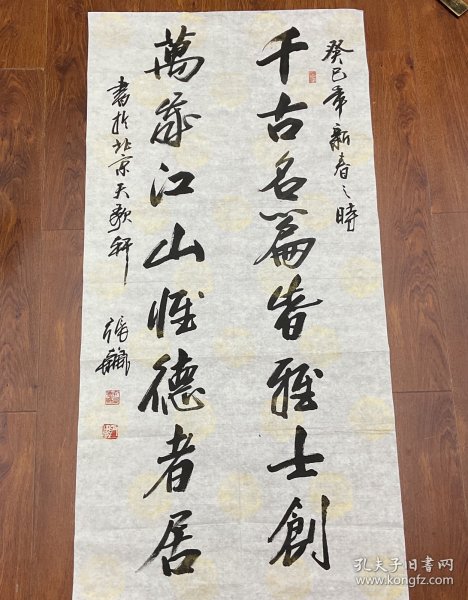 癸巳年新春之時
千古名篇皆雅士創
萬年江山惟德者居
書於北京天歌軒
張
孔夫子旧书网
www.kongfz.com